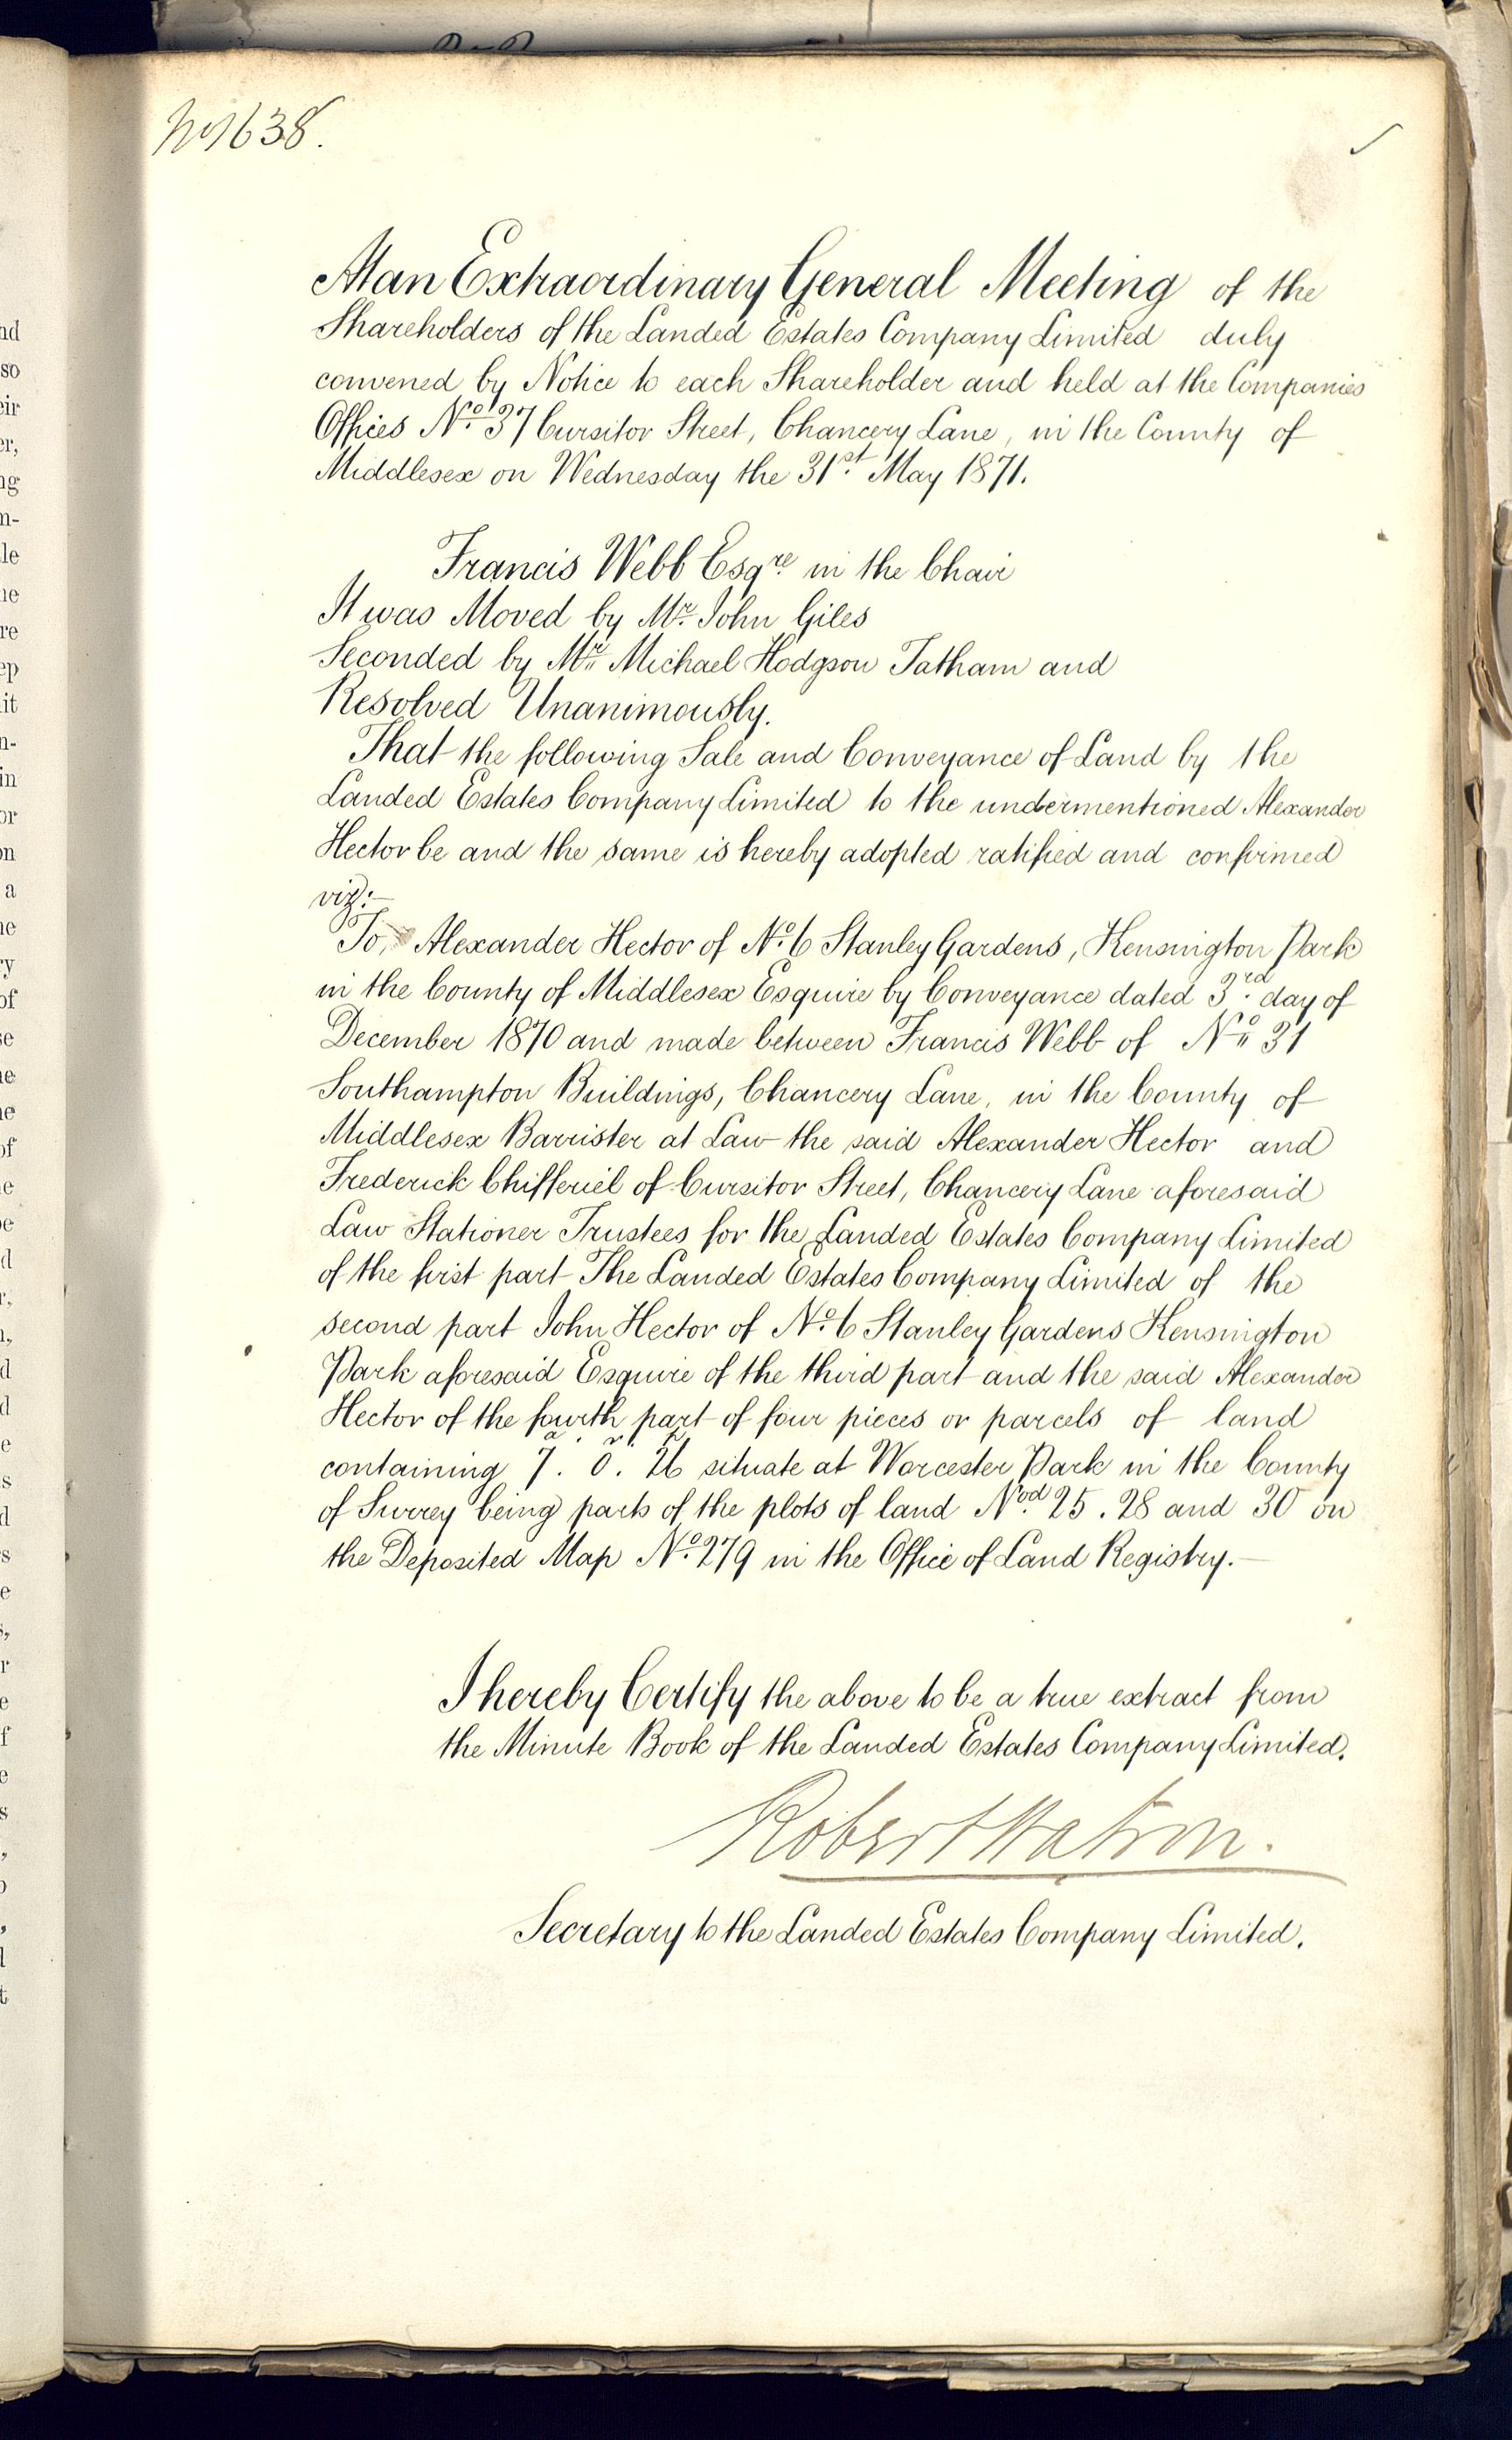 No 1638.
At an Extraordinary General Meeting of the
Shareholders of the Landed Estates Company Limited duly
convened by Notice to each Shareholder and held at the Companies
Offices No. 37 Cursitor Street, Chancery Lane, in the County of
Middlesex on Wednesday the 31st May 1871.
Francis Webb Esqre in the Chair
It was Moved by Mr. John Giles
Seconded by Mr. Michael Hodgson Tatham and
Resolved Unanimously.
That the following Sale and Conveyance of Land by the
Landed Estates Company Limited to the undermentioned Alexander
Hector be and the same is hereby adopted ratified and confirmed
viz:—
To, Alexander Hector of No. 6 Stanley Gardens, Kensington Park
in the County of Middlesex Esquire by Conveyance dated 3rd day of
December 1870 and made between Francis Webb of No. 31
Southampton Buildings, Chancery Lane, in the County of
Middlesex Barrister at Law the said Alexander Hector and
Frederick Chifferiel of Cursitor Street, Chancery Lane aforesaid
Law Stationer Trustees for the Landed Estates Company Limited
of the first part The Landed Estates Company Limited of the
second part John Hector of No. 6 Stanley Gardens Kensington
Park aforesaid Esquire of the third part and the said Alexander
Hector of the fourth part of four pieces or parcels of land
containing 7a. 0r. 26p situate at Worcester Park in the County
of Surrey being parts of the plots of land Nos. 25. 28 and 30 on
the Deposited Map No. 279 in the Office of Land Registry.—
I hereby Certify the above to be a true extract from
the Minute Book of the Landed Estates Company Limited.
Robert Watson.
Secretary to the Landed Estates Company Limited.